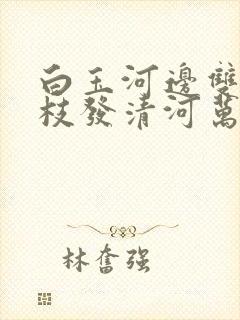 白玉河邊雙
枝發清河萬
林奮强